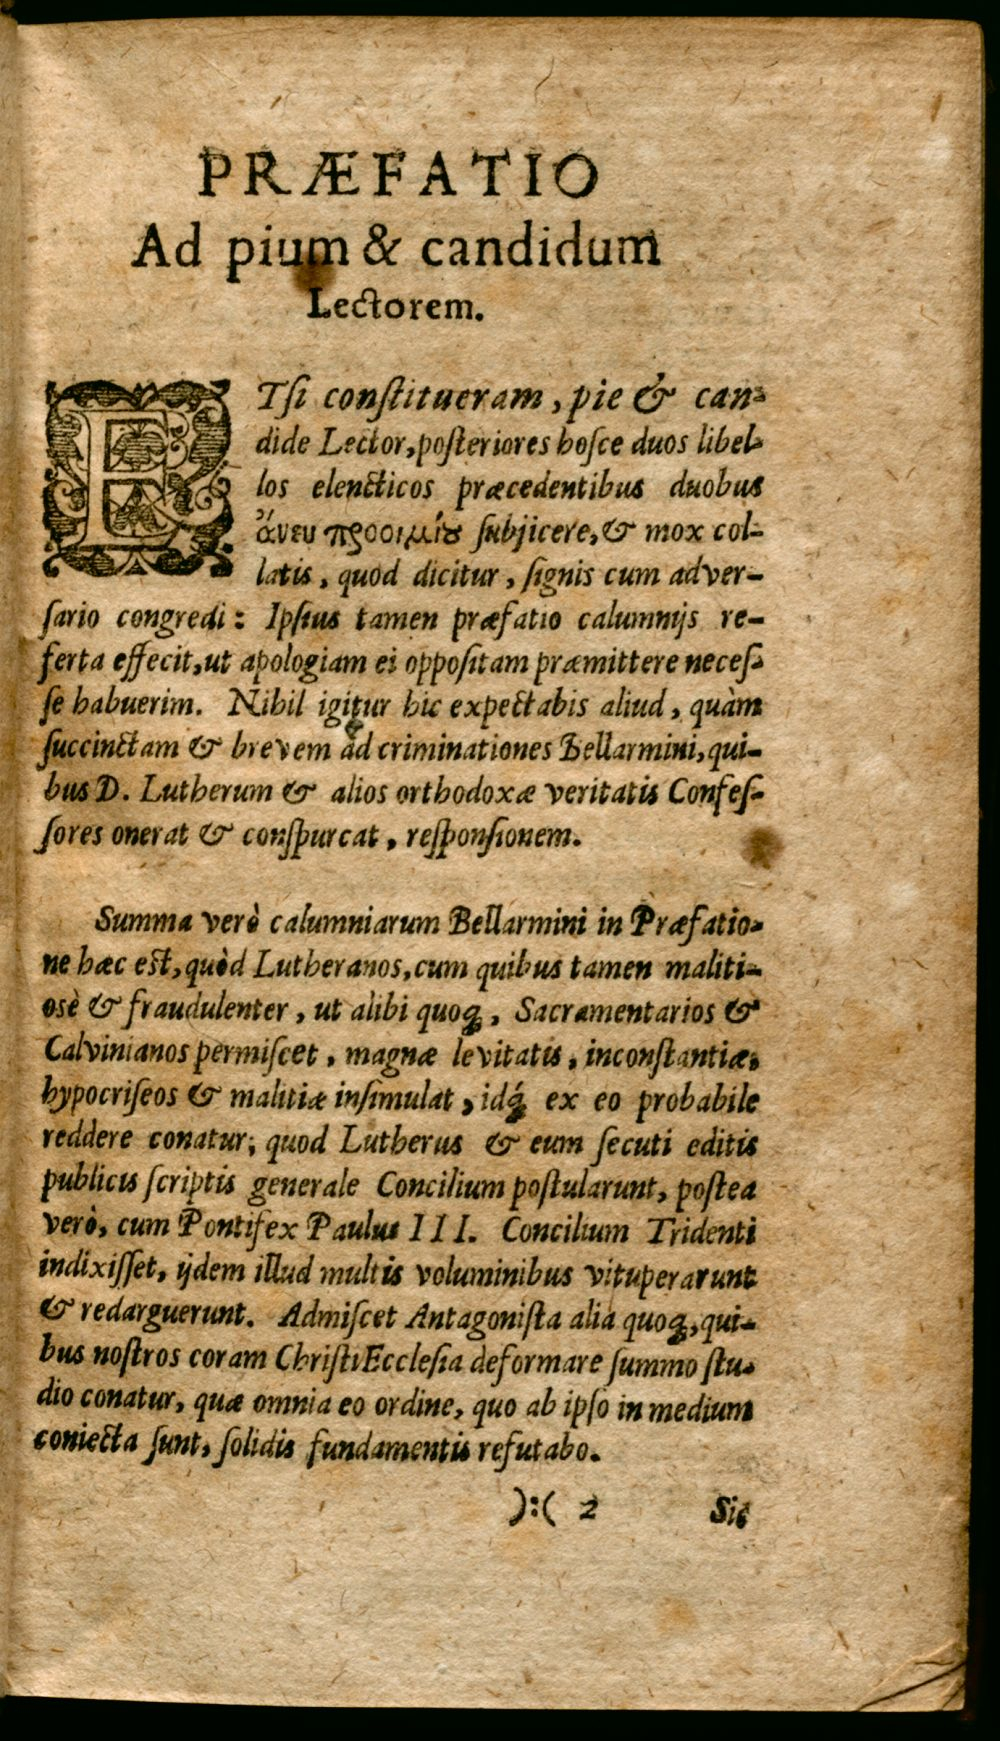 PRÆFATIO
Ad pium & candidum
Lectorem.
ETſi conſtitueram, pie & can-
dide Lector, poſteriores hoſce duos libel-
los elencticos præcedentibus duobus
ἄνευ προοιμίȣ ſubjicere, & mox col-
latis, quod dicitur, ſignis cum adver-
ſario congredi: Ipſius tamen præfatio calumnijs re-
ferta effecit, ut apologiam ei oppoſitam præmittere neceſ-
ſe habuerim. Nihil igitur hic expectabis aliud, quàm
ſuccinctam & brevem ad criminationes Bellarmini, qui-
bus D. Lutherum & alios orthodoxæ veritatis Confeſ-
ſores onerat & conſpurcat, reſponſionem.
Summa verò calumniarum Bellarmini in Præfatio-
ne hæc eſt, quòd Lutheranos, cum quibus tamen maliti-
osè & fraudulenter, ut alibi quoq;, Sacramentarios &
Calvinianos permiſcet, magnæ levitatis, inconſtantiæ,
hypocriſeos & malitiæ inſimulat, idq́; ex eo probabile
reddere conatur, quod Lutherus & eum ſecuti editis
publicis ſcriptis generale Concilium poſtularunt, poſtea
verò, cum Pontifex Paulus III. Concilium Tridenti
indixiſſet, ijdem illud multis voluminibus vituperarunt
& redarguerunt. Admiſcet Antagoniſta alia quoq;, qui-
bus noſtros coram Chriſti Eccleſia deformare ſummo ſtu-
dio conatur, quæ omnia eo ordine, quo ab ipſo in medium
coniecta ſunt, ſolidis fundamentis refutabo.
):( 2 Sic